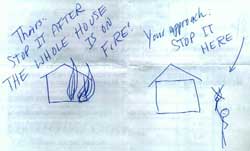 Theirs:
STOP IT AFTER
THE WHOLE HOUSE
IS ON
FIRE!
Your approach:
STOP IT
HERE